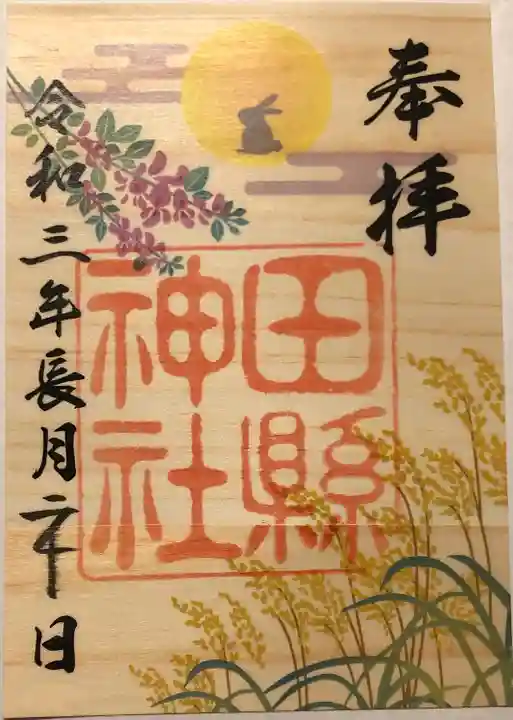 奉拝
田縣
神社
令和三年長月二十日